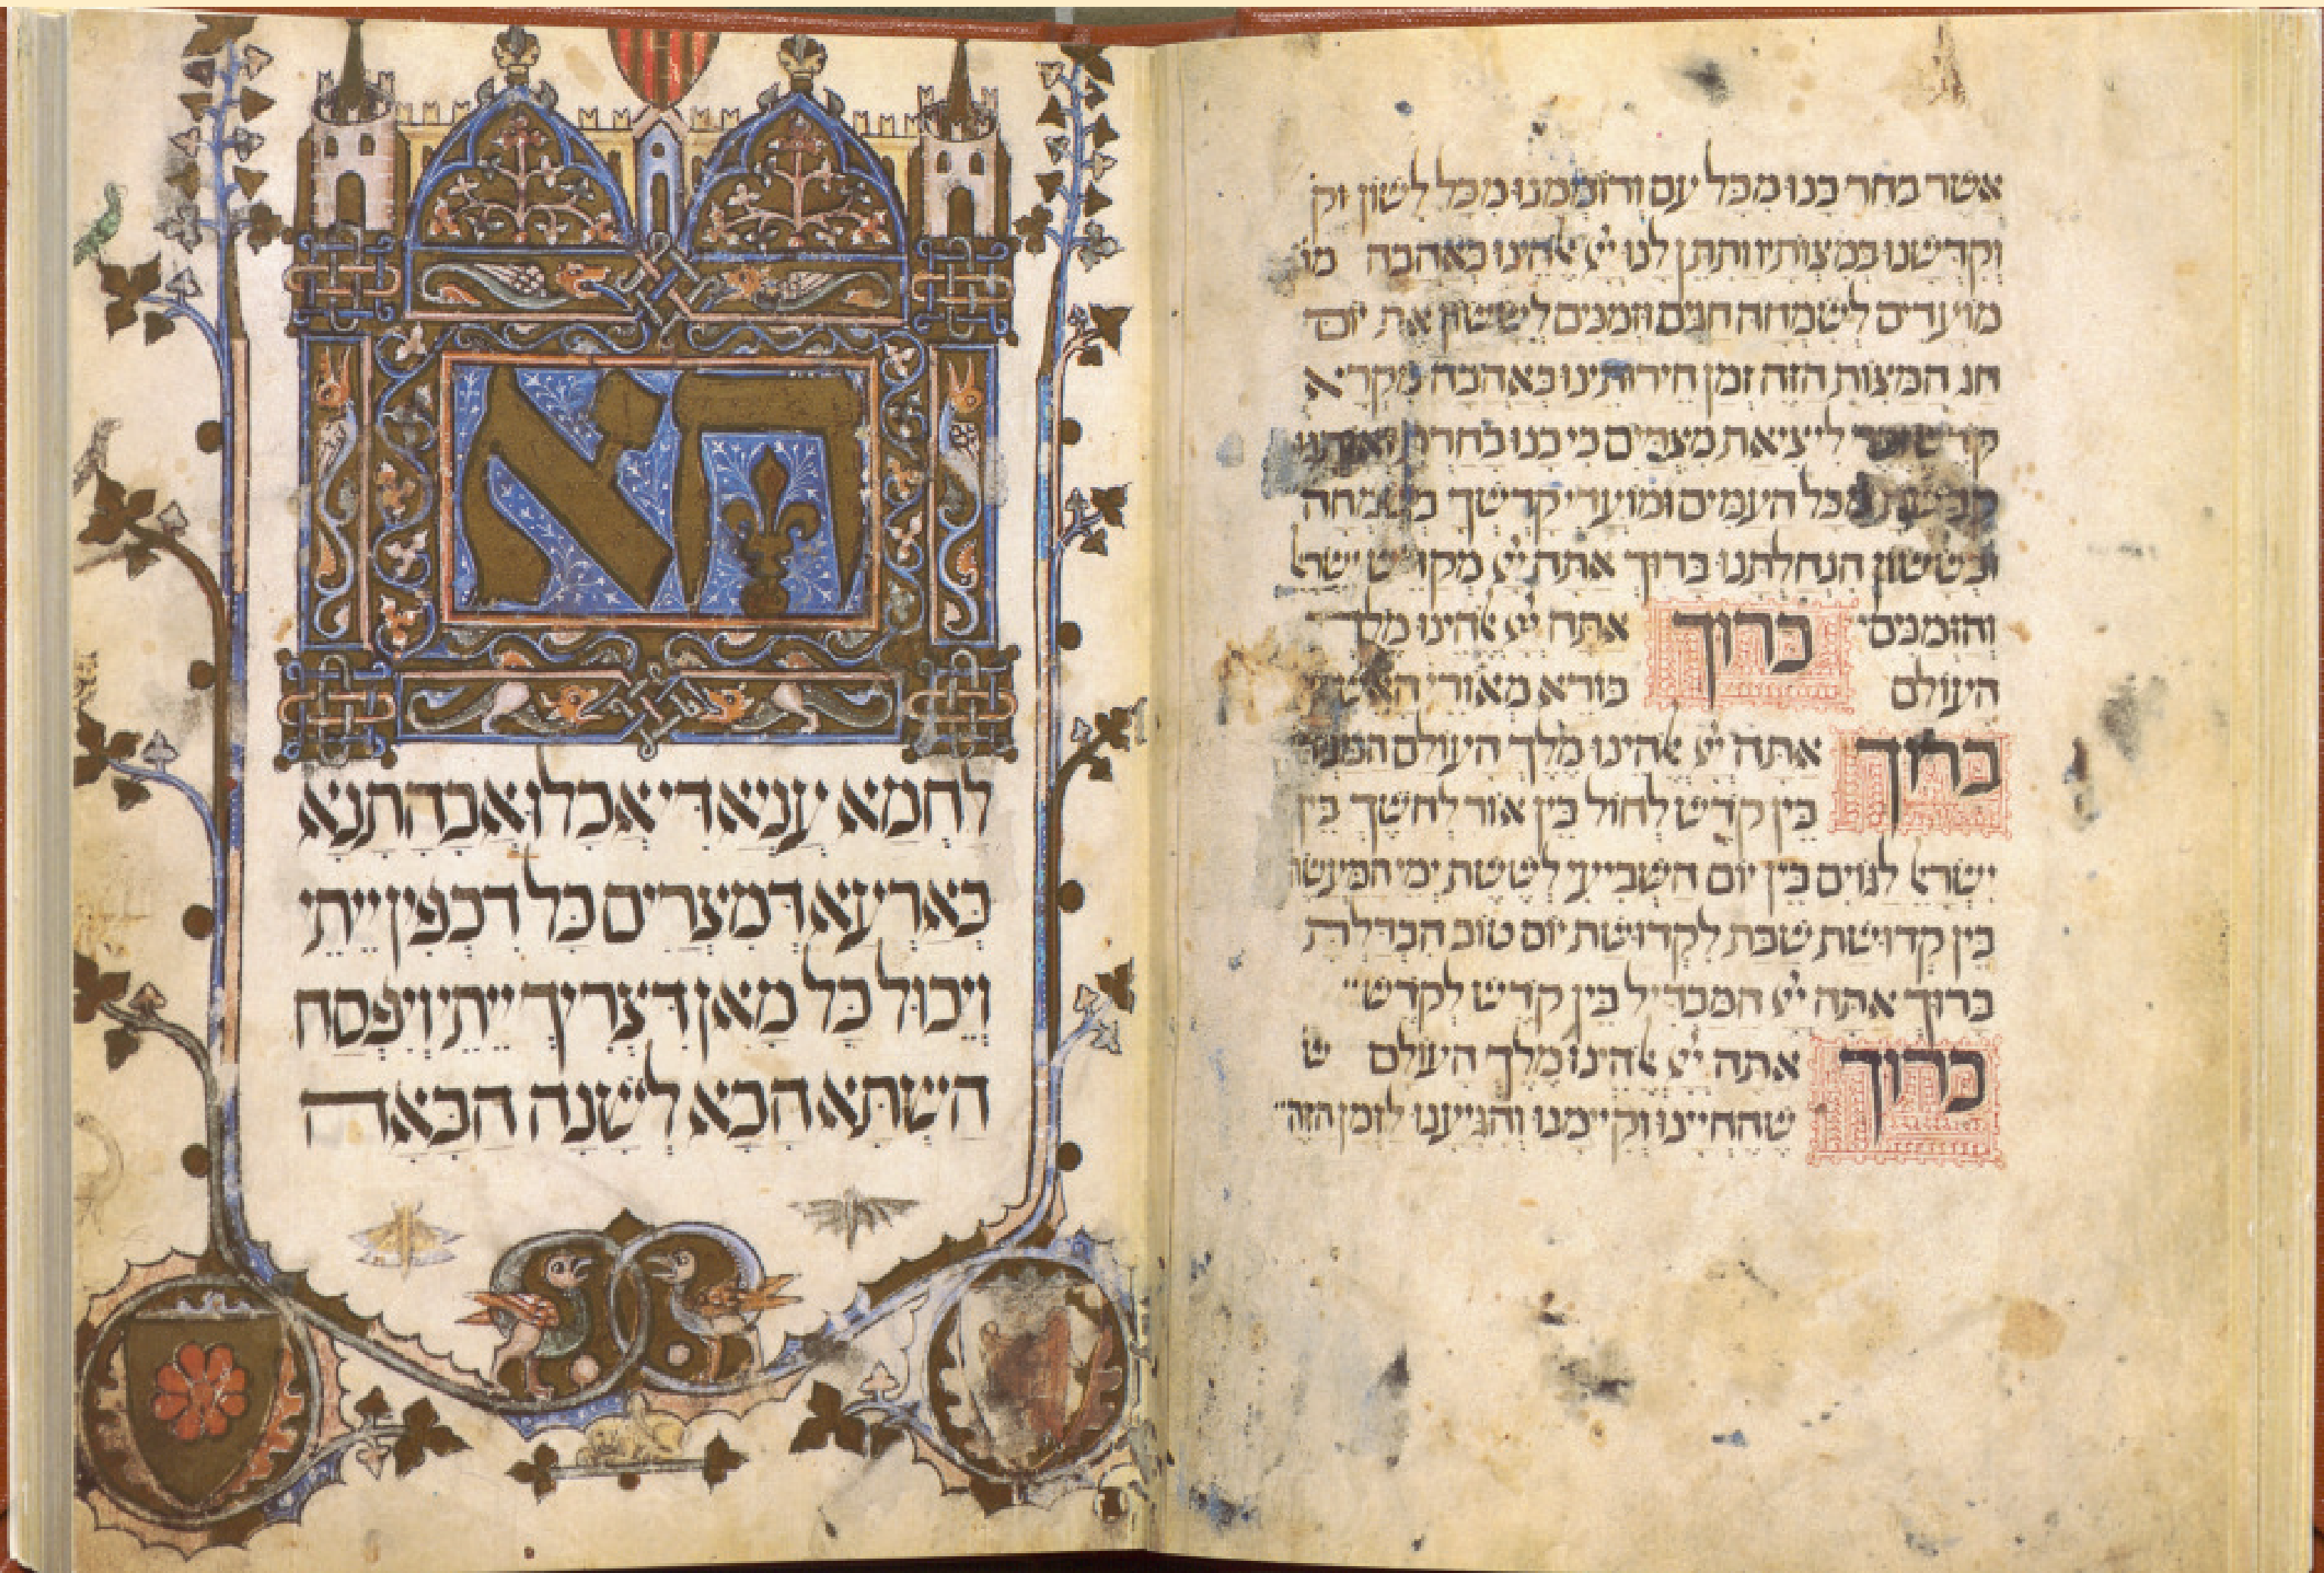 אשר בחר בנו מכל עם ורוממנו מכל לשון וק
וקדשנו במצותיו ותתן לנו ייי אלהינו באהבה מו
מועדים לשמחה חגים וזמנים לששון את יום
חג המצות הזה זמן חירותינו באהבה מקרא
קדש זכר ליציאת מצרים כי בנו בחרת ואותנו
קדשת מכל העמים ומועדי קדשך בשמחה
ובששון הנחלתנו ברוך אתה ייי מקדש ישראל
והזמנים ברוך אתה ייי אלהינו מלך
העולם בורא מאורי האש
ברוך אתה ייי אלהינו מלך העולם המבדי
בין קדש לחול בין אור לחשך בין
ישראל לגוים בין יום השביעי לששת ימי המעשה
בין קדושת שבת לקדושת יום טוב הבדלת
ברוך אתה ייי המבדיל בין קדש לקדש
ברוך אתה ייי אלהינו מלך העולם ש
שהחיינו וקיימנו והגיענו לזמן הזה
הא
לַחְמָא עַנְיָא דִּי אֲכָלוּ אֲבָהָתָנָא
בְּאַרְעָא דְּמִצְרַיִם כָּל דִּכְפִין יֵיתֵי
וְיֵכוּל כָּל מָאן דִּצְרִיךְ יֵיתֵי וְיִפְסַח
הַשַּׁתָּא הָכָא לְשָׁנָה הַבָּאָה